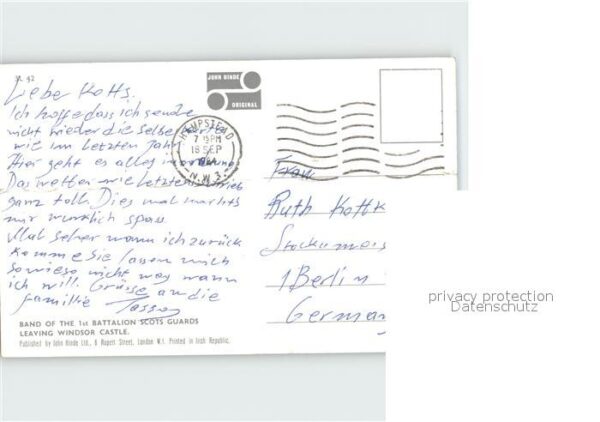 2L 92
Liebe Kotts.
Ich hoffe dass ich sende
nicht wieder die selbe Karte
wie im letzten Jahr
Hier geht es alles in
Das wetter wie letzten
ganz toll. Dies mal machts
mir wirklich spass
Mal seher wann ich zurück
komme Sie lassen mich
sowieso nicht weg wann
ich will. Grüsse an die
familie
BAND OF THE 1st BATTALION SCOTS GUARDS
LEAVING WINDSOR CASTLE.
Published by John Hinde Ltd., 6 Rupert Street, London W.1. Printed in Irish Republic.
JOHN HINDE
ORIGINAL
HAMPSTEAD
7 15PM
18 SEP
N.W.3.
Frau
Ruth Kottk
1 Berlin
German
privacy protection
Datenschutz